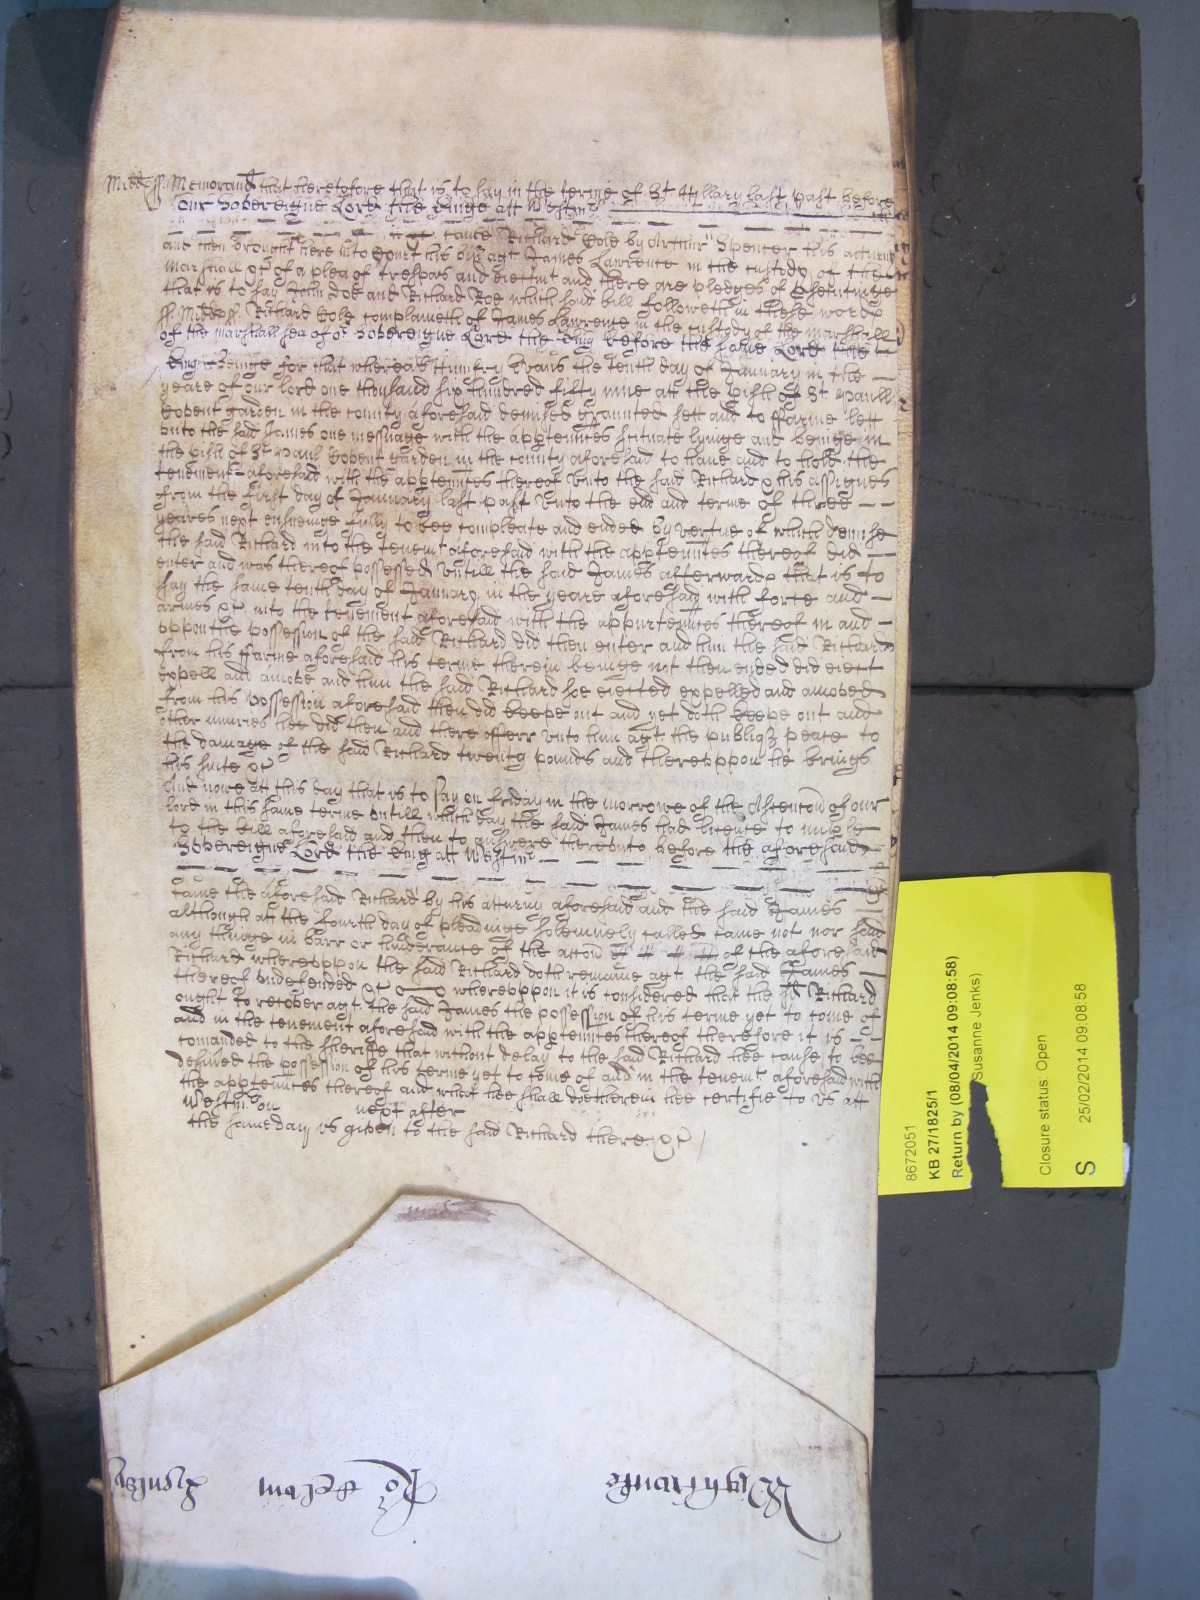 Midd ss Memorand that heretofore that is to say in the terme of St Hillary last past before
our Sovereigne Lord the Kinge att Westmr
came Richard Cole by Arthur Spencer his atturny
and then brought here into Court his bill agt James Lawrence in the custody of the
Marshall &c of a plea of trespas and eiectmt and there are pledges of
that is to say John Doe and Richard Roe which said bill followeth in these words
ss Midd ss Richard Cole complaineth of James Lawrence in the custody of the marshall
of the marshallsea of or Sovereigne Lord the King before the same Lord the
King beinge for that whereas Humfry Evans the tenth day of January in the
yeare of our lord one thousand six hundred fifty nine att the pish of St Paull
Covent garden in the county aforesaid demised graunted sett and to ffarme lett
unto the said James one messuage with the apptennces scituate lyinge and beinge in
the pish of St Paul Covent garden in the county aforesaid to have and to hold the
tenement aforesaid with the apptennces thereof unto the said Richard & his assignes
from the first day of January last past unto the end and terme of three
yeares next ensueinge fully to bee compleate and ended by vertue of which demise
the said Richard into the tenemt aforesaid with the apptennces thereof did
enter and was thereof possessed untill the said James afterwards that is to
say the same tenth day of January in the yeare aforesaid with force and
armes &c into the tenement aforesaid with the appurtennces thereof in and
uppon the possession of the said Richard did then enter and him the said Richard
from his ffarme aforesaid his terme therein beinge not then ended did eiect
expell and amove and him the said Richard soe eiected expelled and amoved
from his possession aforesaid then did keepe out and yet doth keepe out and
other iniuries hee did then and there offer unto him agt the publiq peace to
the damage of the said Richard twenty pounds and thereuppon he brings
his suite &c
And nowe att this day that is to say on Friday in the morrowe of the Ascencon of our
lord in this same terme untill which day the said James had licence to imple
to the bill aforesaid and then to answere thereunto before the aforesaid
Sovereigne Lord the King att Westmr
came the aforesaid Richard by his atturny aforesaid and the said James
although at the fourth day of pleadinge solemnely called came not nor said
any thinge in barr or hinderance of the accon of the aforesaid
Richard whereuppon the said Richard doth remaine agt the said James
thereof undefended &c whereuppon it is considered that the sd Richard
ought to recover agt the said James the possession of his terme yet to come of
and in the tenement aforesaid with the apptennces thereof therefore it is
comanded to the sheriffe that without delay to the said Richard hee cause to bee
delived the possession of his terme yet to come of and in the tenemt aforesaid with
the apptennces thereof and what hee shall doe therein hee certifie to us att
Westmr on next after
the same day is given to the said Richard there &c
8672051
KB 27/1825/1
Return by (08/04/2014 09:08:58)
Susanne Jenks)
Closure status: Open
S 25/02/2014 09:08:58